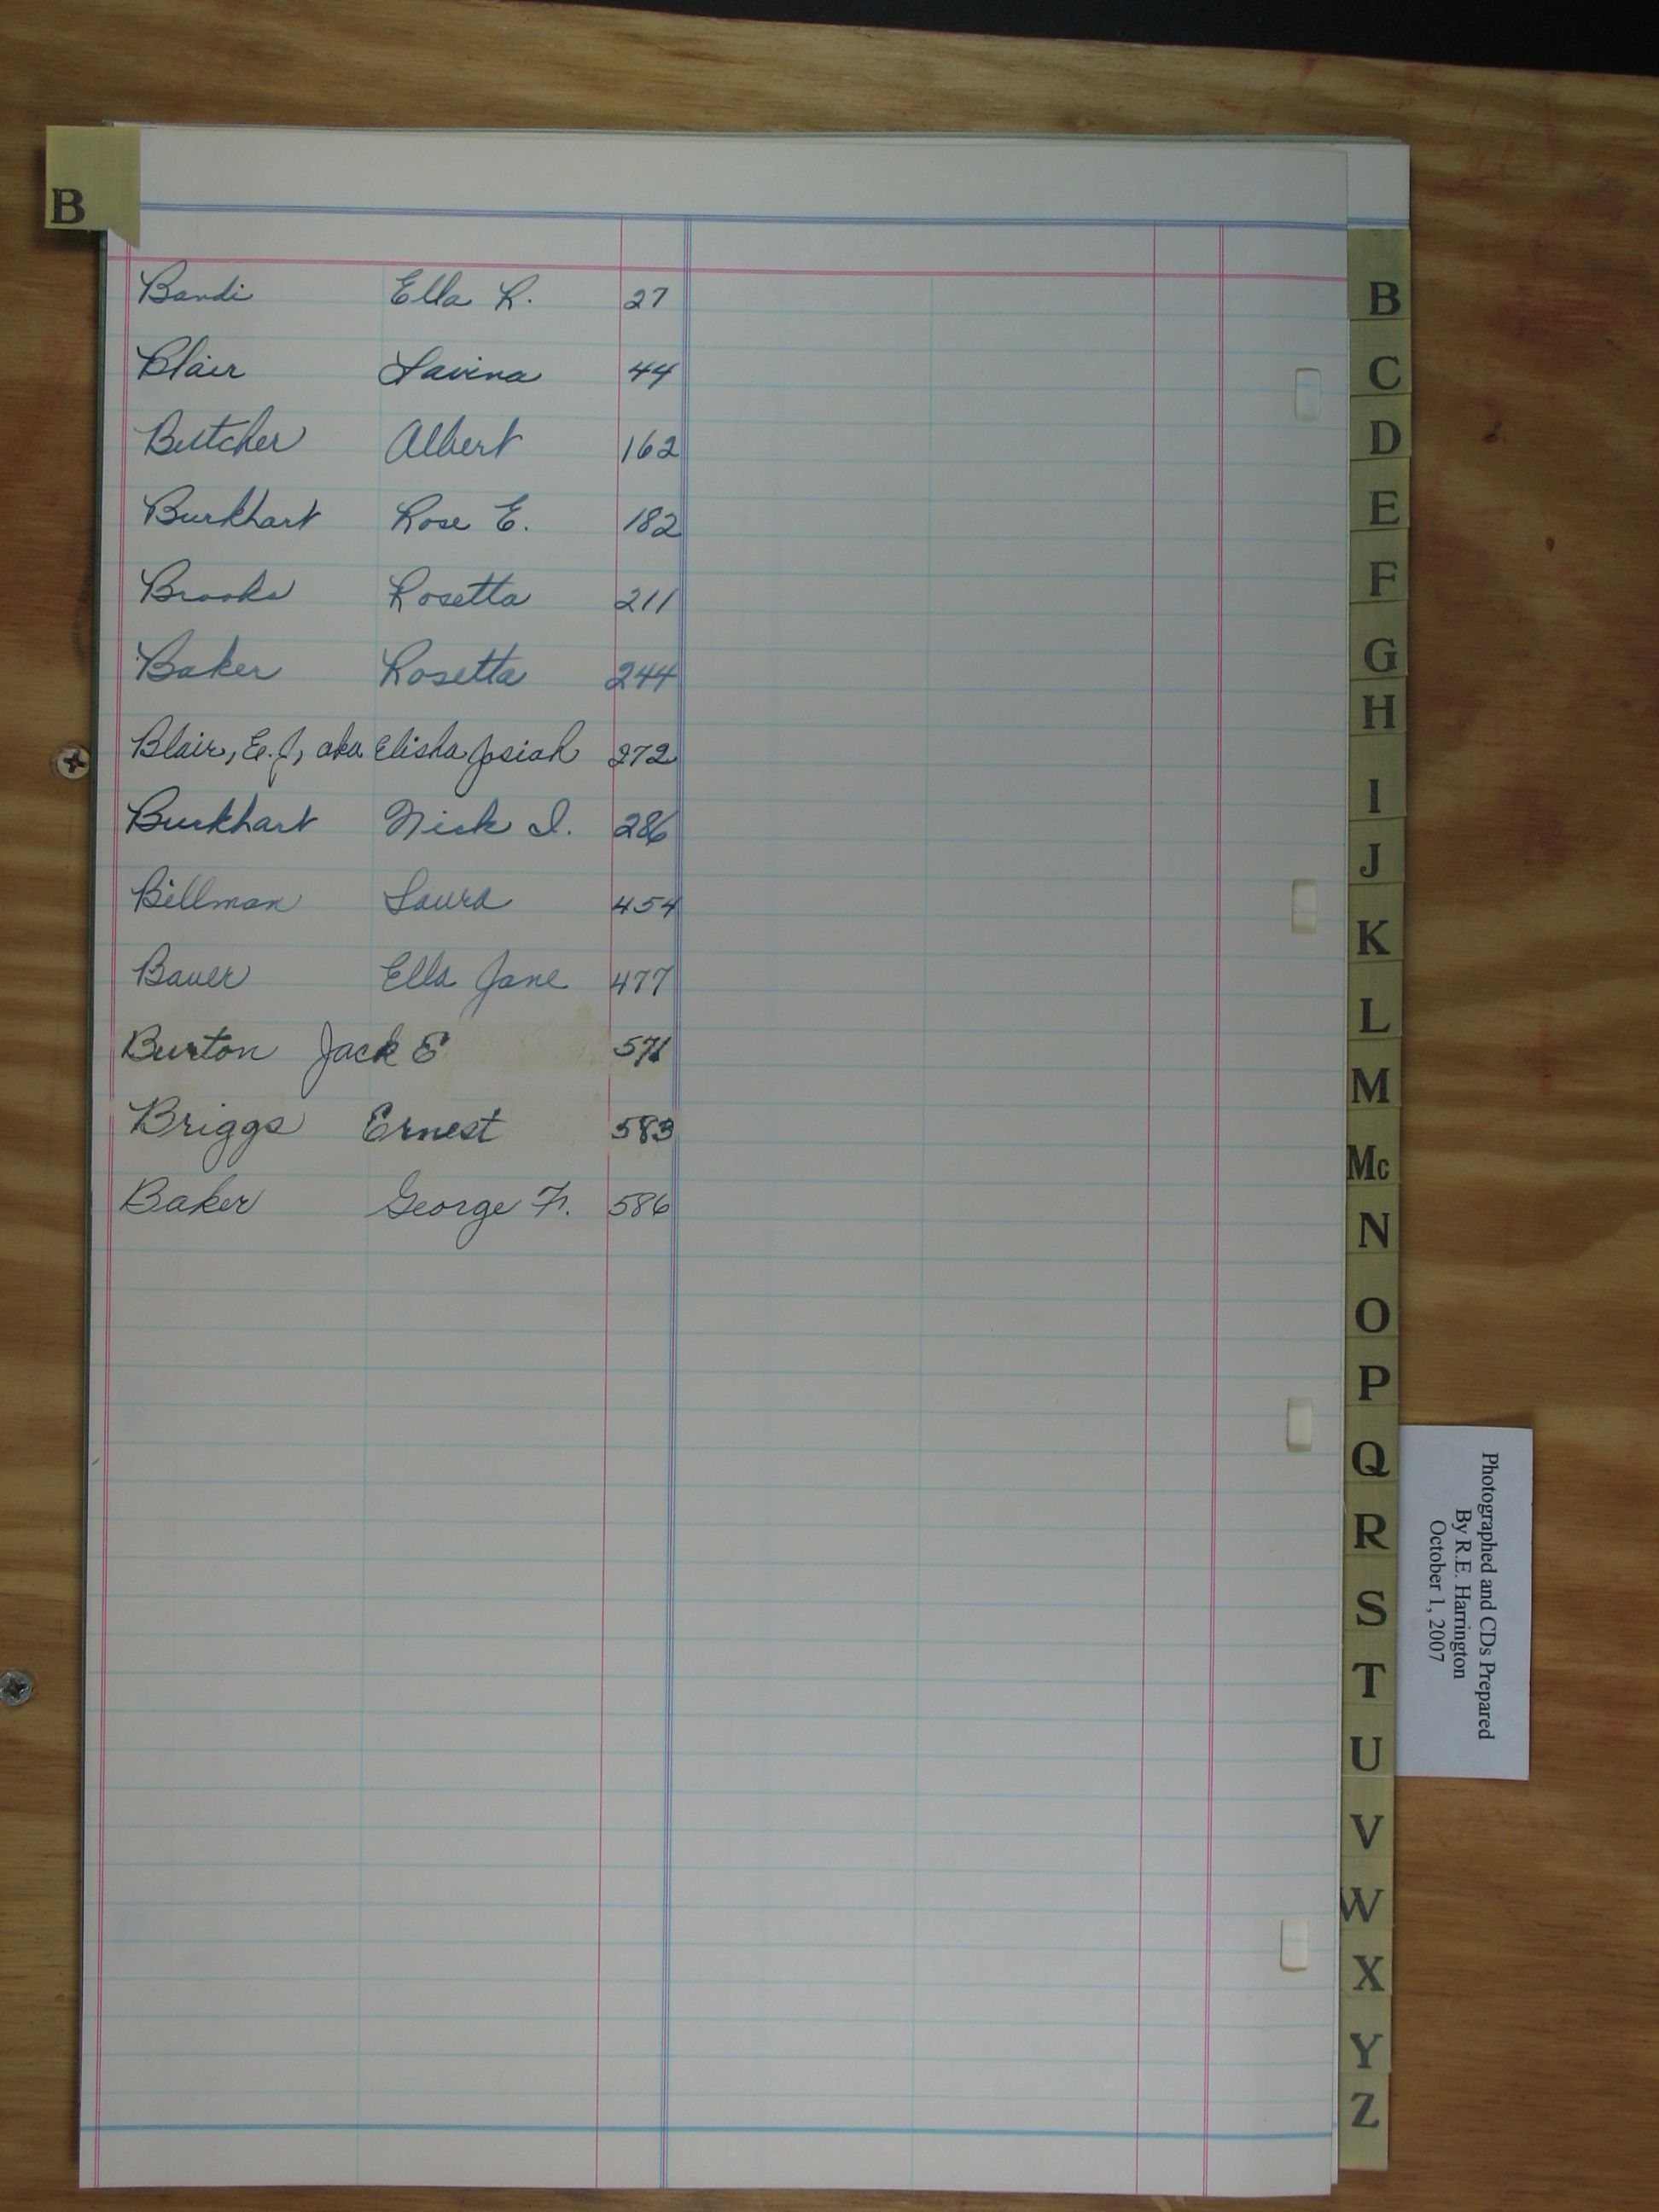 B
Bandi Ella R. 27
Blair Lavina 44
Butcher Albert 162
Burkhart Rose E. 182
Brooks Rosetta 211
Baker Rosetta 244
Blair, E. J, aka Elisha Josiah 272
Burkhart Nick I. 286
Billman Laura 454
Bauer Ella Jane 477
Burton Jack E 571
Briggs Ernest 583
Baker George F. 586
B
C
D
E
F
G
H
I
J
K
L
M
Mc
N
O
P
Q
R
S
T
U
V
W
X
Y
Z
Photographed and CDs Prepared
By R.E. Harrington
October 1, 2007